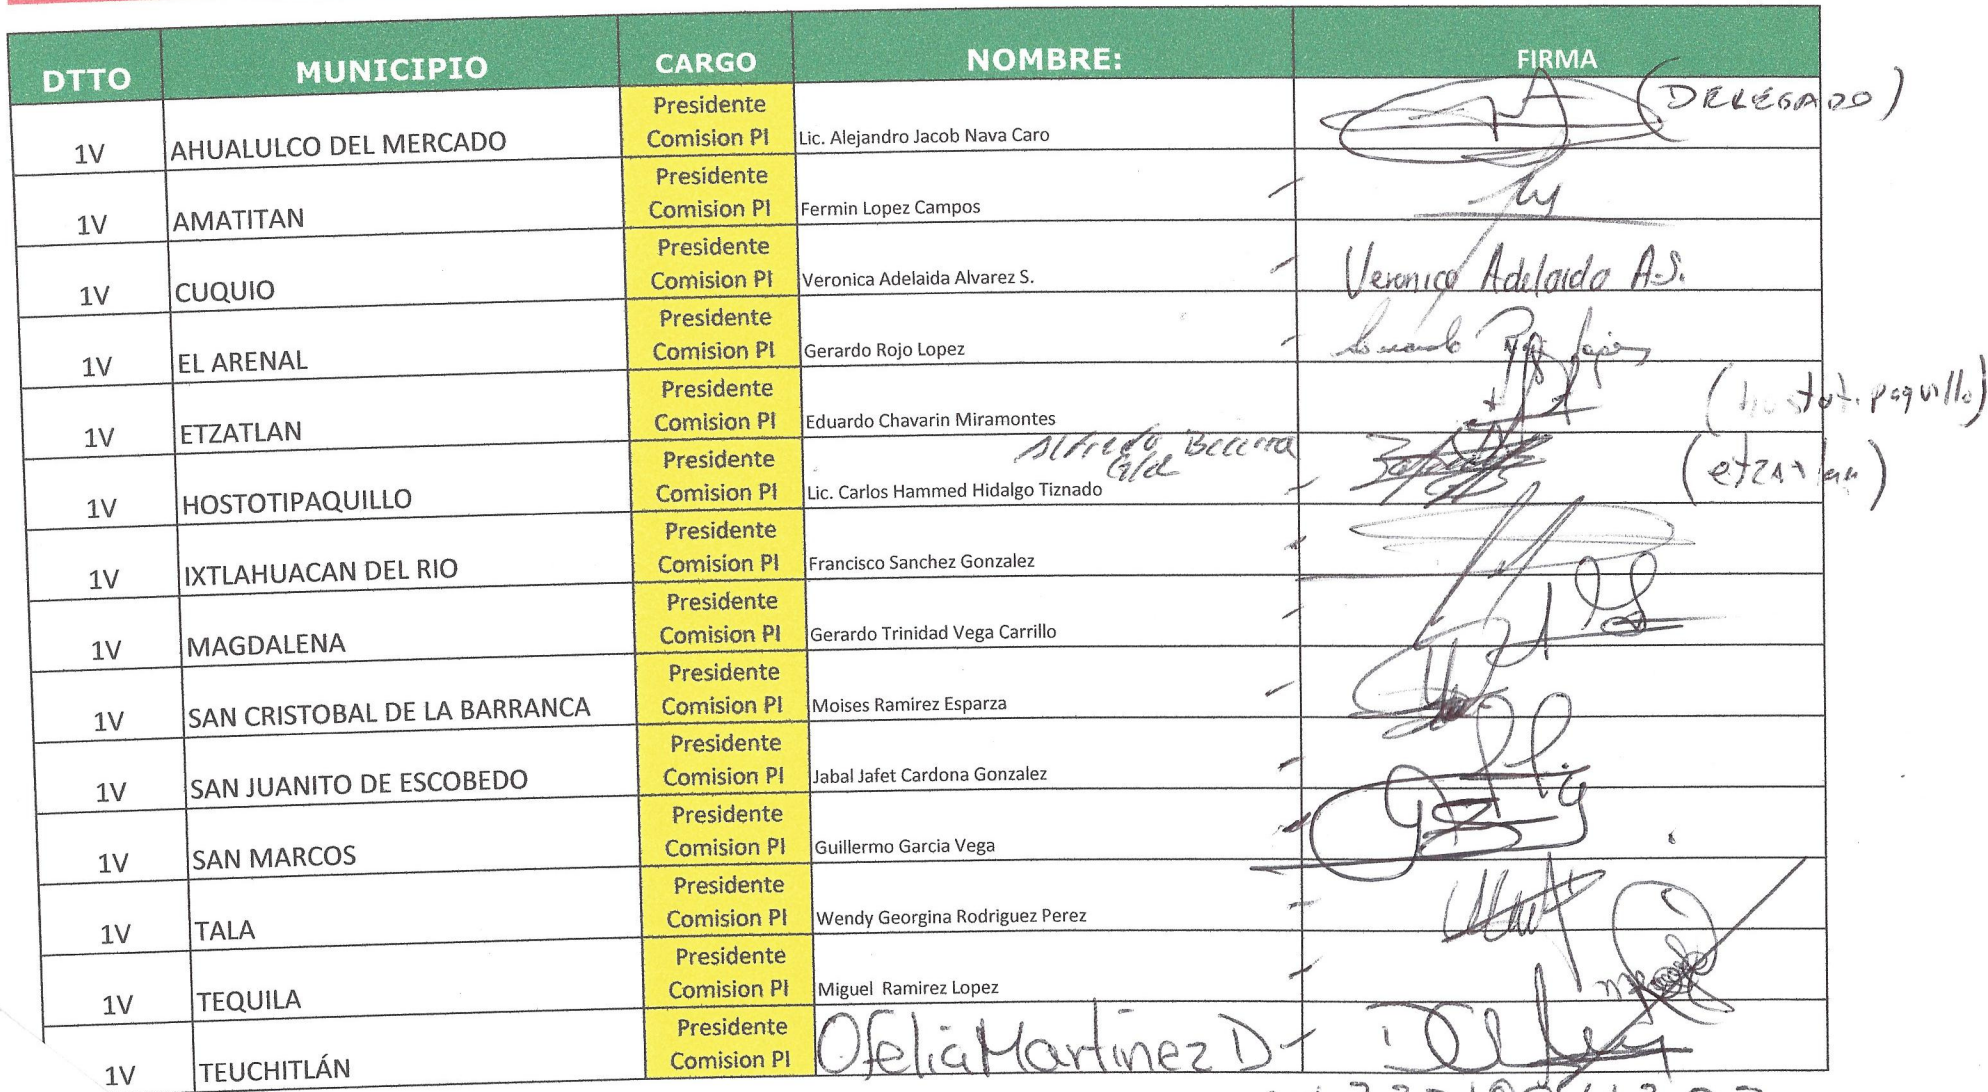 DTTO MUNICIPIO CARGO NOMBRE: FIRMA
1V AHUALULCO DEL MERCADO Presidente Comision PI Lic. Alejandro Jacob Nava Caro (DELEGADO)
1V AMATITAN Presidente Comision PI Fermin Lopez Campos
1V CUQUIO Presidente Comision PI Veronica Adelaida Alvarez S. Veronica Adelaida A.S.
1V EL ARENAL Presidente Comision PI Gerardo Rojo Lopez
1V ETZATLAN Presidente Comision PI Eduardo Chavarin Miramontes (hostotipaquillo)
Alfredo Becerra
1V HOSTOTIPAQUILLO Presidente Comision PI Lic. Carlos Hammed Hidalgo Tiznado (etzatlan)
1V IXTLAHUACAN DEL RIO Presidente Comision PI Francisco Sanchez Gonzalez
1V MAGDALENA Presidente Comision PI Gerardo Trinidad Vega Carrillo
1V SAN CRISTOBAL DE LA BARRANCA Presidente Comision PI Moises Ramirez Esparza
1V SAN JUANITO DE ESCOBEDO Presidente Comision PI Jabal Jafet Cardona Gonzalez
1V SAN MARCOS Presidente Comision PI Guillermo Garcia Vega
1V TALA Presidente Comision PI Wendy Georgina Rodriguez Perez
1V TEQUILA Presidente Comision PI Miguel Ramirez Lopez
1V TEUCHITLÁN Presidente Comision PI Ofelia Martinez D